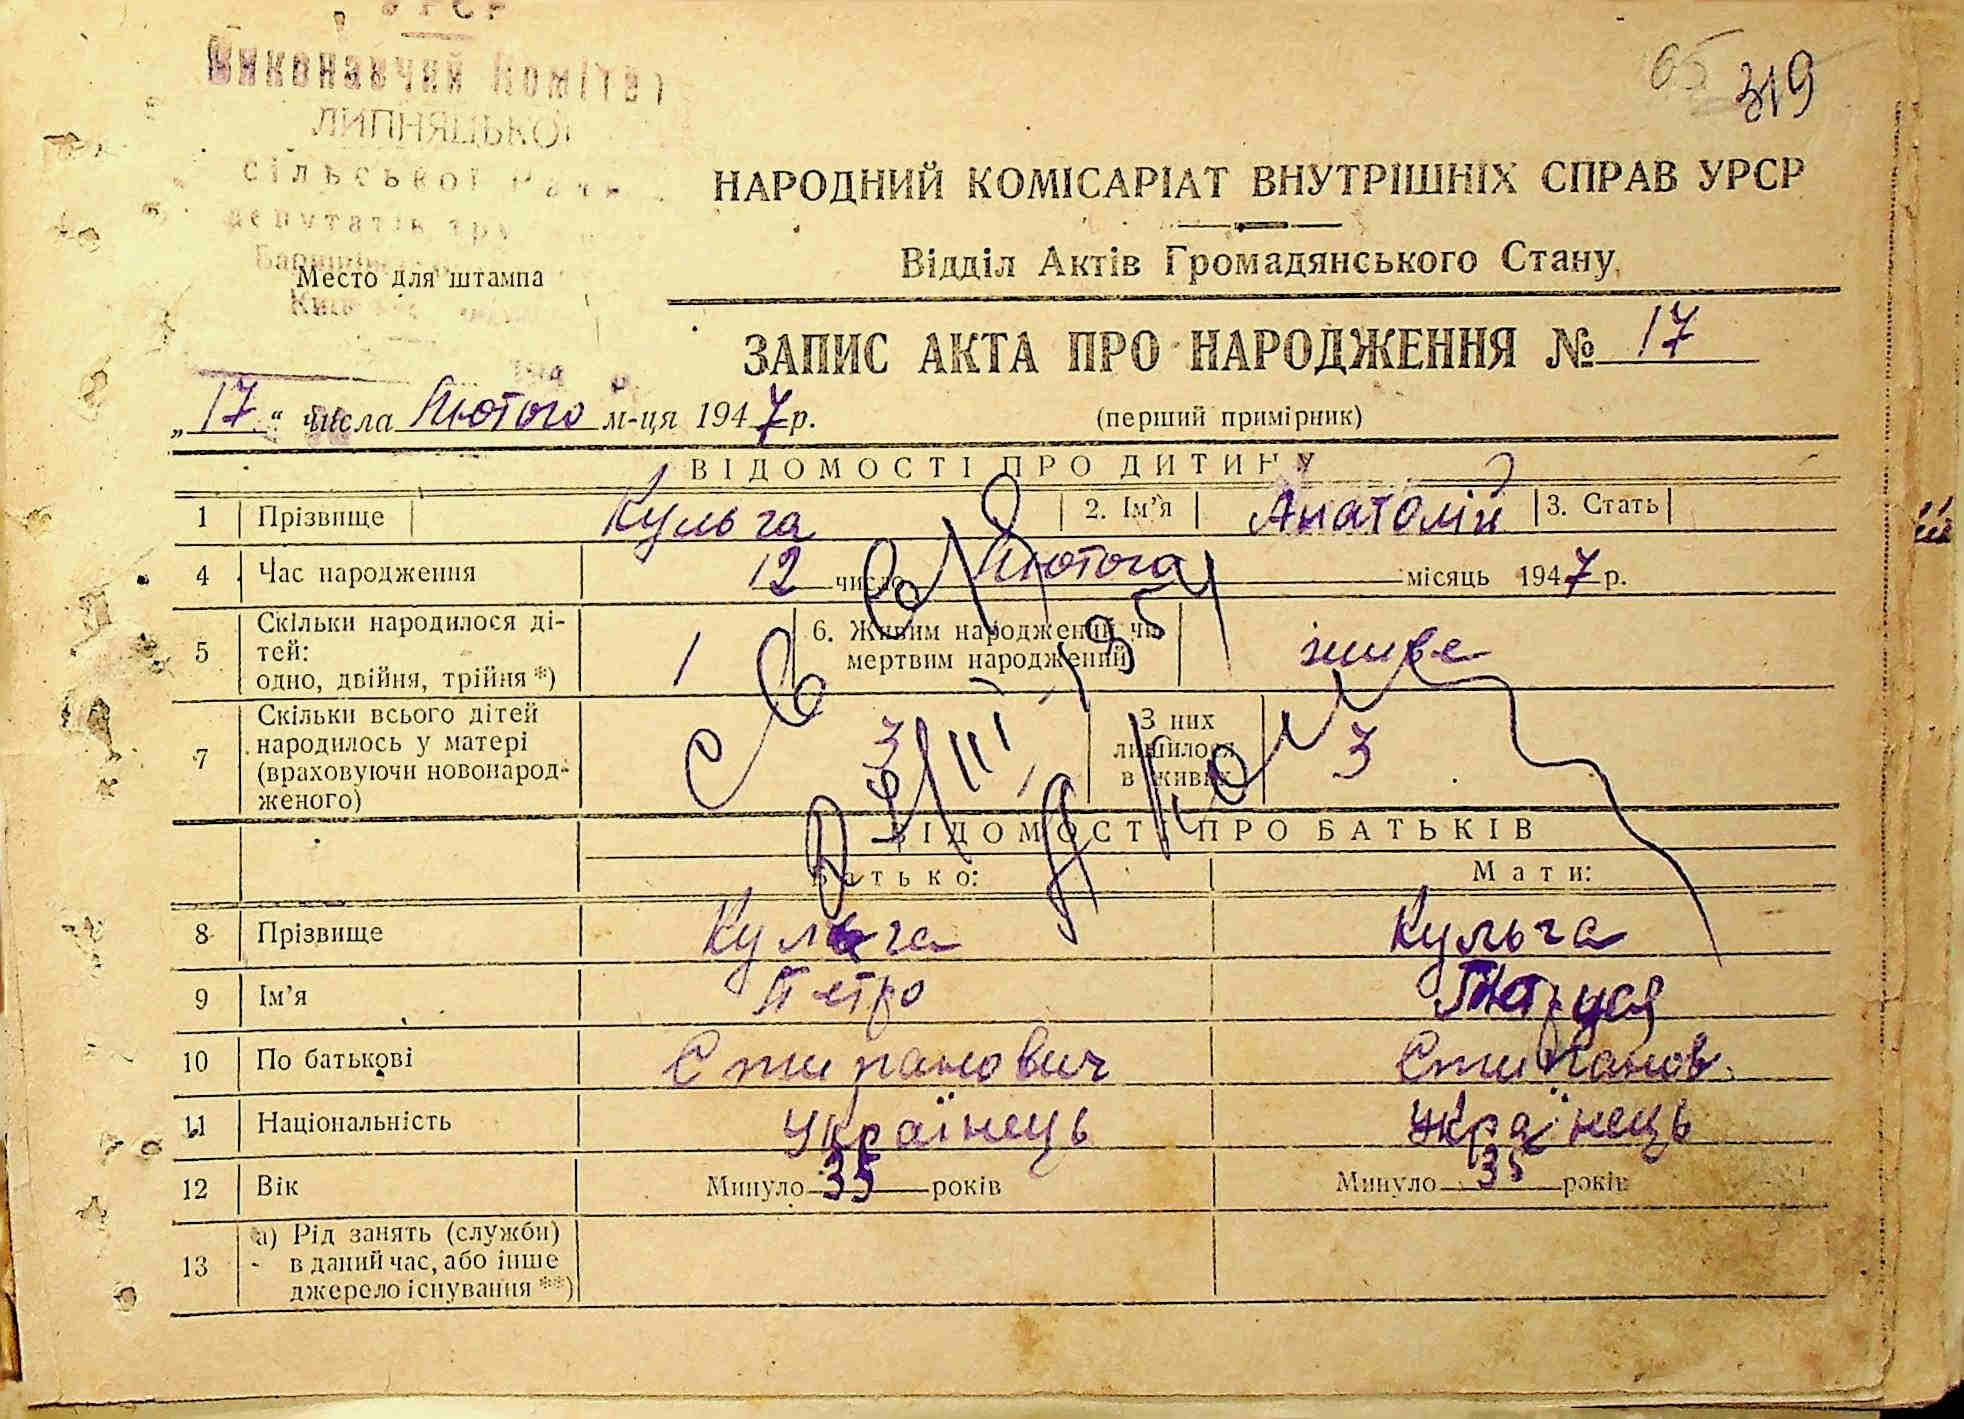 УРСР
Виконавчий Комітет
ЛИПНЯЦЬКОЇ
сільської Ради
депутатів тру
Место для штампа
319
НАРОДНИЙ КОМІСАРІАТ ВНУТРІШНІХ СПРАВ УРСР
Відділ Актів Громадянського Стану
ЗАПИС АКТА ПРО НАРОДЖЕННЯ № 17
„17“ числа Лютого м-ця 1947 р. (перший примірник)
ВІДОМОСТІ ПРО ДИТИНУ
1 Прізвище Кульга 2. Ім’я Анатолій 3. Стать
4 Час народження 12 число Лютого місяць 1947 р.
5 Скільки народилося ді-
тей:
одно, двійня, трійня *) 1 6. Живим народжений чи
мертвим народжений живе
7 Скільки всього дітей
народилось у матері
(враховуючи новонарод-
женого) 3 З них
лишилося
в живих 3
ВІДОМОСТІ ПРО БАТЬКІВ
Батько: Мати:
8 Прізвище Кульга Кульга
9 Ім’я Петро Маруся
10 По батькові Стипанович Стипанов
11 Національність Українець Українець
12 Вік Минуло 35 років Минуло 35 років
13 а) Рід занять (служби)
в даний час, або інше
джерело існування **)